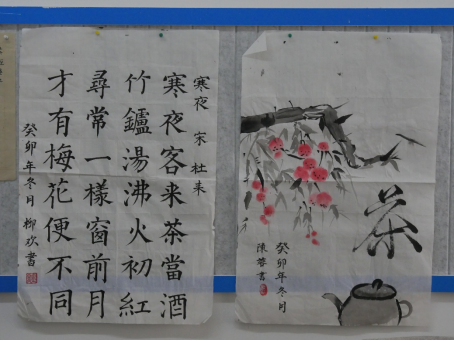 寒夜 宋 杜耒
寒夜客来茶當酒
竹鑪湯沸火初紅
尋常一樣窗前月
才有梅花便不同
癸卯年冬月 柳欢書
茶
癸卯年冬月
陳蓉書